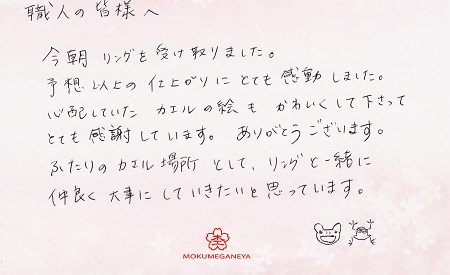 職人の皆様へ
今朝 リングを受け取りました。
予想以上の仕上がりにとても感動しました。
心配していた カエルの絵も かわいくして下さって
とても感謝しています。 ありがとうございます。
ふたりのカエル場所 として、リングと一緒に
仲良く 大事にしていきたいと思っています。
MOKUMEGANEYA